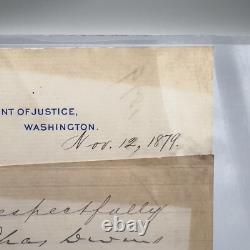 NT OF JUSTICE,
WASHINGTON.
Nov. 12, 1879.
respectfully
Chas Devens